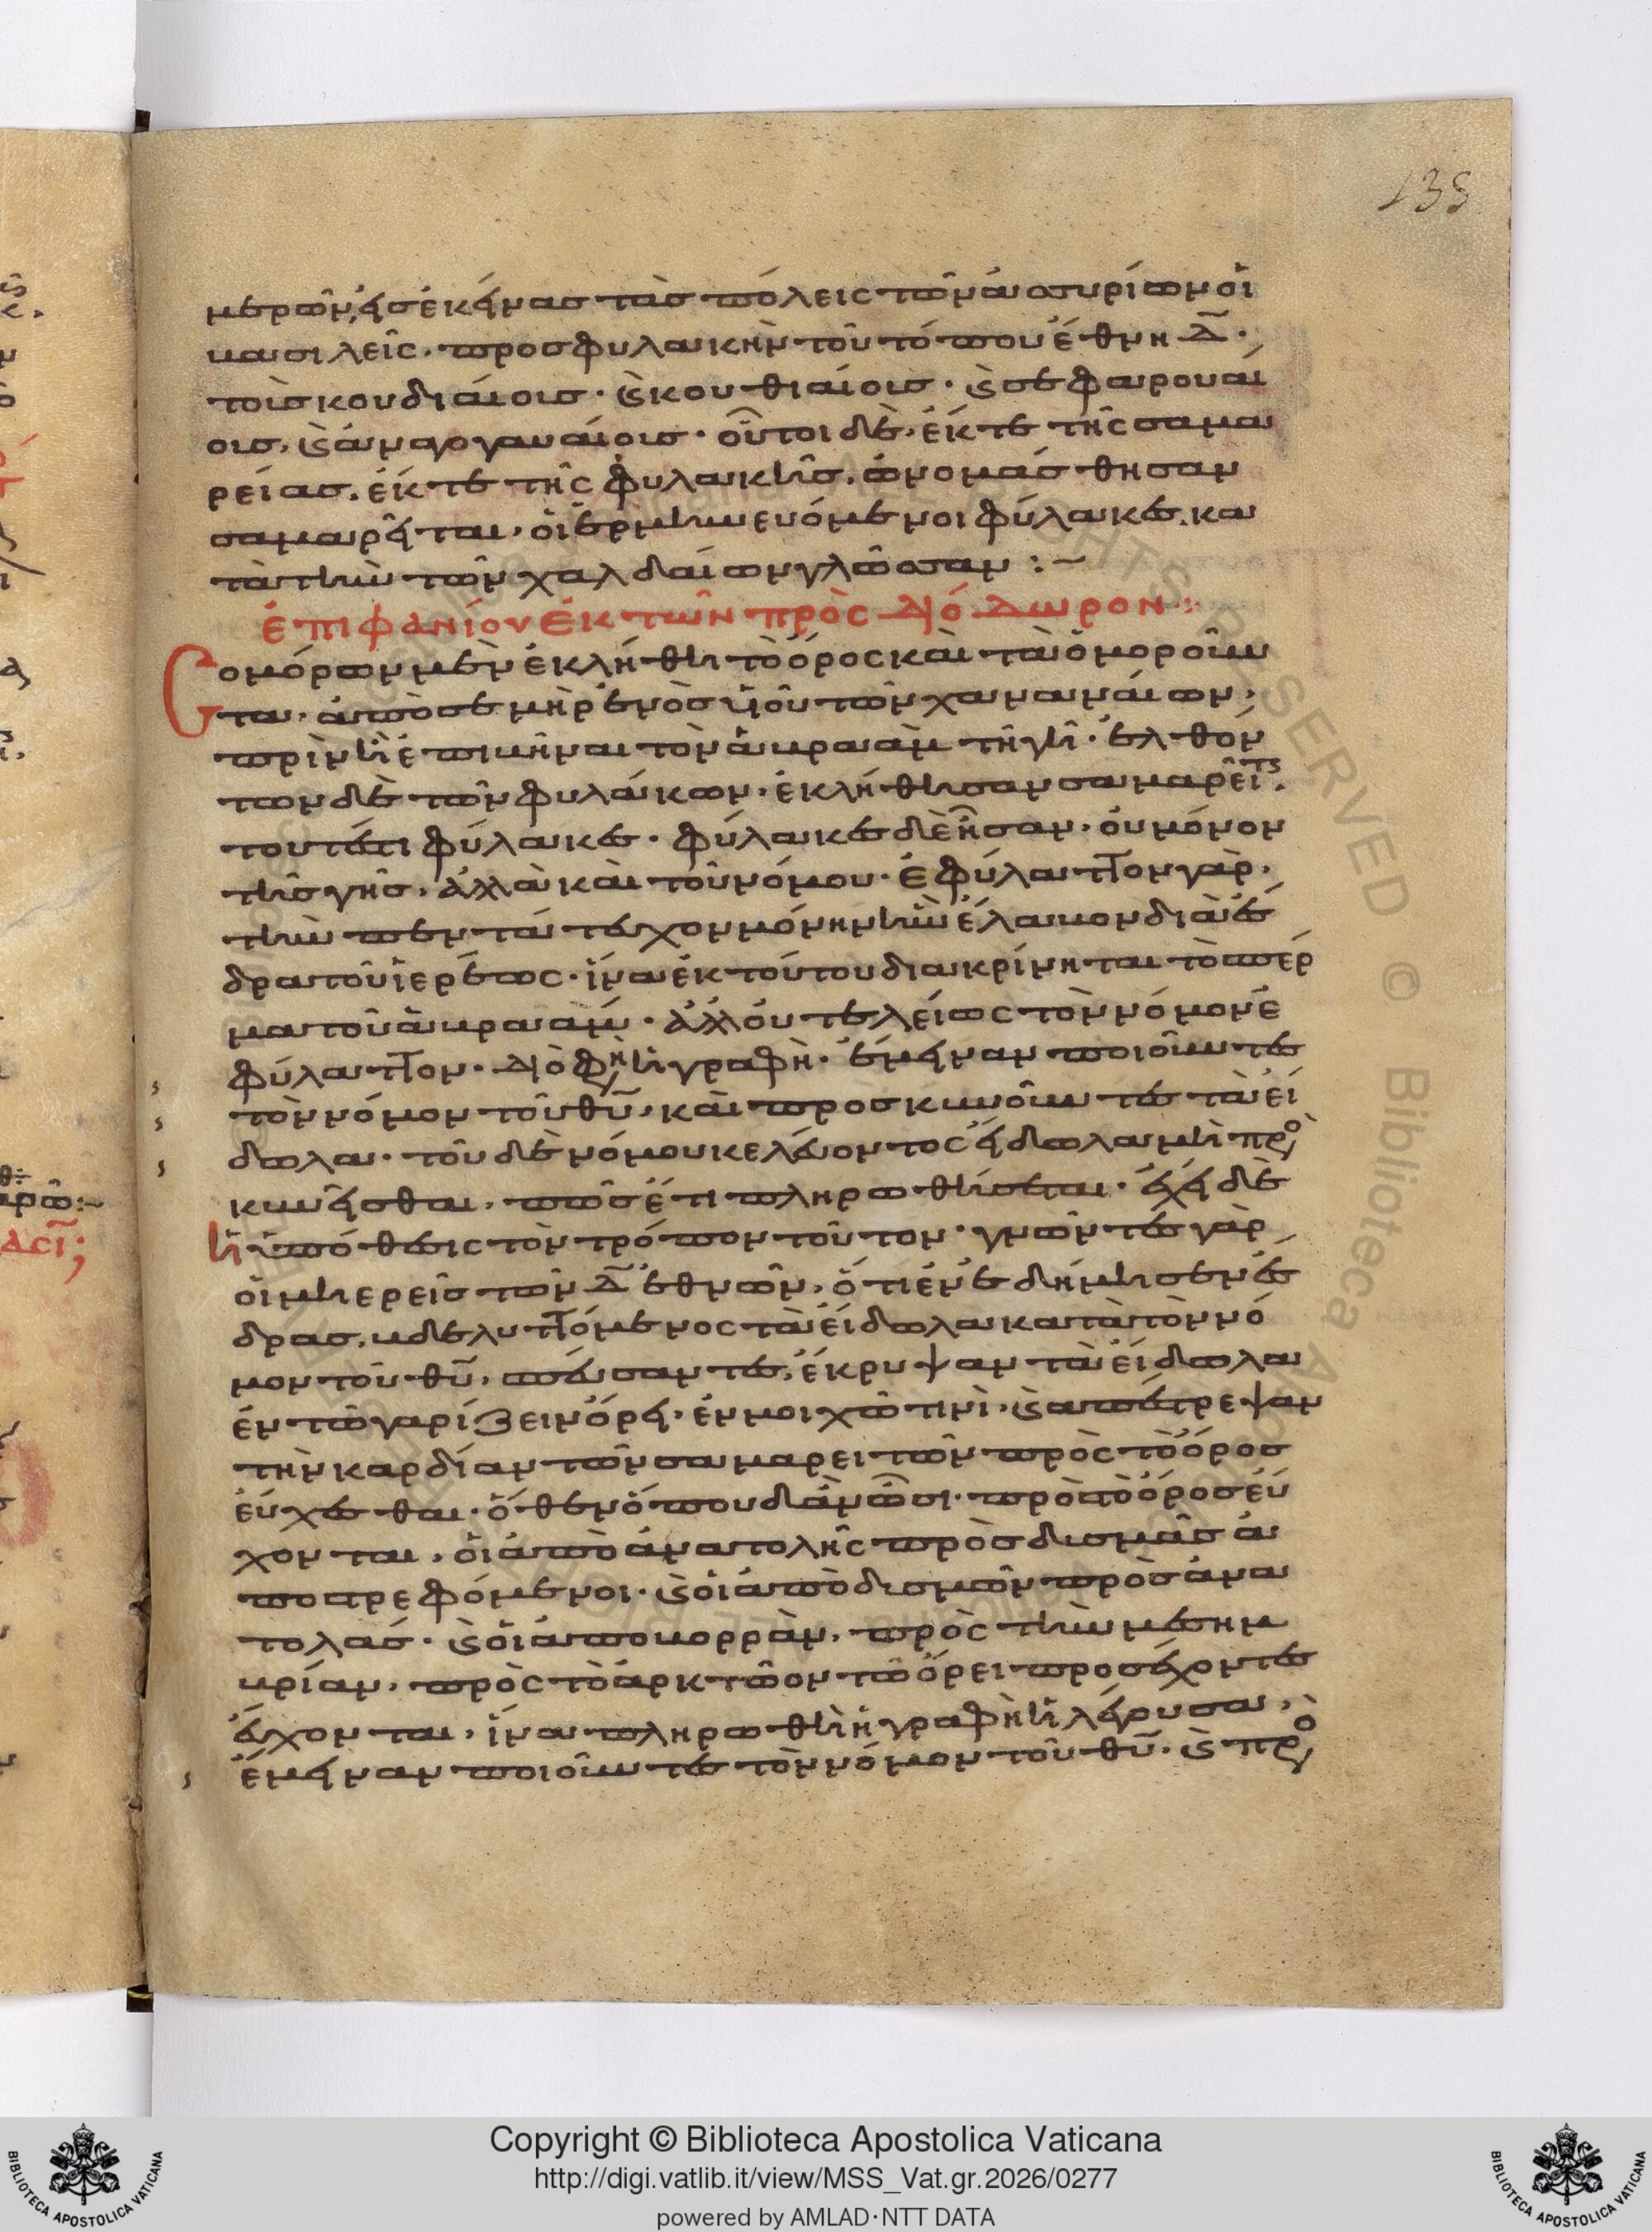 135
μερῶν, εἰς ἐκείνας τὰς πόλεις τῶν ἀσσυρίων οἱ
βασιλεῖς. πρὸς φυλακὴν τοῦ τόπου ἔθνη δ̄.
τοῖς κουδιαίοις. ϗ κουθιαίοις. ϗ σεφαρουαί
οις. ϗ ἀναγογαυαίοις. οὗτοι δὲ, ἔκ τε τῆς σαμα
ρείας. ἔκ τε τῆς φυλακῆς. ὠνομάσθησαν
σαμαρεῖται. οἱ ἑρμηνευόμενοι φύλακες. κα
τὰ τὴν τῶν χαλδαίων γλῶσσαν :~
ἐπιφανίου ἐκ τῶν πρὸς διόδωρον :
Σομόρων μὲν ἐκλήθη τὸ ὄρος καὶ τὰ ὁμοροῦν
τα. ἀπὸ σεμὴρ ἑνὸς υἱοῦ τῶν χαναναίων.
πρὶν ἢ ἐπιβῆναι τὸν ἀβραὰμ τῆ γῆ. ἐλθόν
των δὲ τῶν φυλάκων. ἐκλήθησαν σαμαρεῖτ.
τουτέστι φύλακες. φύλακες δὲ ἦσαν. οὐ μόνον
τῆς γῆς. ἀλλὰ καὶ τοῦ νόμου. ἐφύλαττον γὰρ.
τὴν πεντάτευχον μόνην ἣν ἔλαβον διὰ ἔσ
δρα τοῦ ἱερέως. ἵνα ἐκ τούτου διακρίνηται τὸ σπέρ
μα τοῦ ἀβραάμ. ἀλλ' οὐ τελείως τὸν νόμον ἐ
φύλαττον. διό φη(σιν) ἡ γραφή. ἔμειναν ποιοῦντες
τὸν νόμον τοῦ θυ, καὶ προσκυνοῦντες τὰ εἴ
δωλα. τοῦ δὲ νόμου κελεύοντος εἴδωλα μὴ προ
κυνεῖσθαι. πῶς ἔτι πληρωθήσεται. ἔχει δὲ
ἡ ὑπόθεσις τὸν τρόπον τοῦτον. γνῶντες γὰρ
οἱ μὴ ἱερεῖς τῶν δ̄ ἐθνῶν, ὅτι ἐνεδήμησεν ἔσ
δρας. βδελυττόμενος τὰ εἴδωλα κατὰ τὸν νό
μον τοῦ θυ. σπεύσαντες, ἔκρυψαν τὰ εἴδωλα
ἐν τῶ γαριζεὶν ὄρει. ἐν μοιχῶ τινί. ϗ ἀπέστρεψαν
τὴν καρδίαν τῶν σαμαρειτῶν πρὸς τὸ ὄρος
εὔχεσθαι. ὅθεν ὅπου δἂν ὦσι. πρὸς τὸ ὄρος εὔ
χονται. οἱ ἀπὸ ἀνατολῆς πρὸς δυσμὰς ἀ
ποστρεφόμενοι. ϗ οἱ ἀπὸ δυσμῶν πρὸς ἀνα
τολάς. ϗ οἱ ἀπὸ βορρᾶν. πρὸς τὴν μεσημ
βρίαν. πρὸς τὸ ἀρκτῶον τῶ ὄρει προσέχοντες
εὔχονται. ἵνα πληρωθῆ ἡ γραφὴ ἡ λέγουσα.
ἔμειναν ποιοῦντες τὸν νόμον τοῦ θυ. ϗ προ
Copyright © Biblioteca Apostolica Vaticana
http://digi.vatlib.it/view/MSS_Vat.gr.2026/0277
powered by AMLAD·NTT DATA